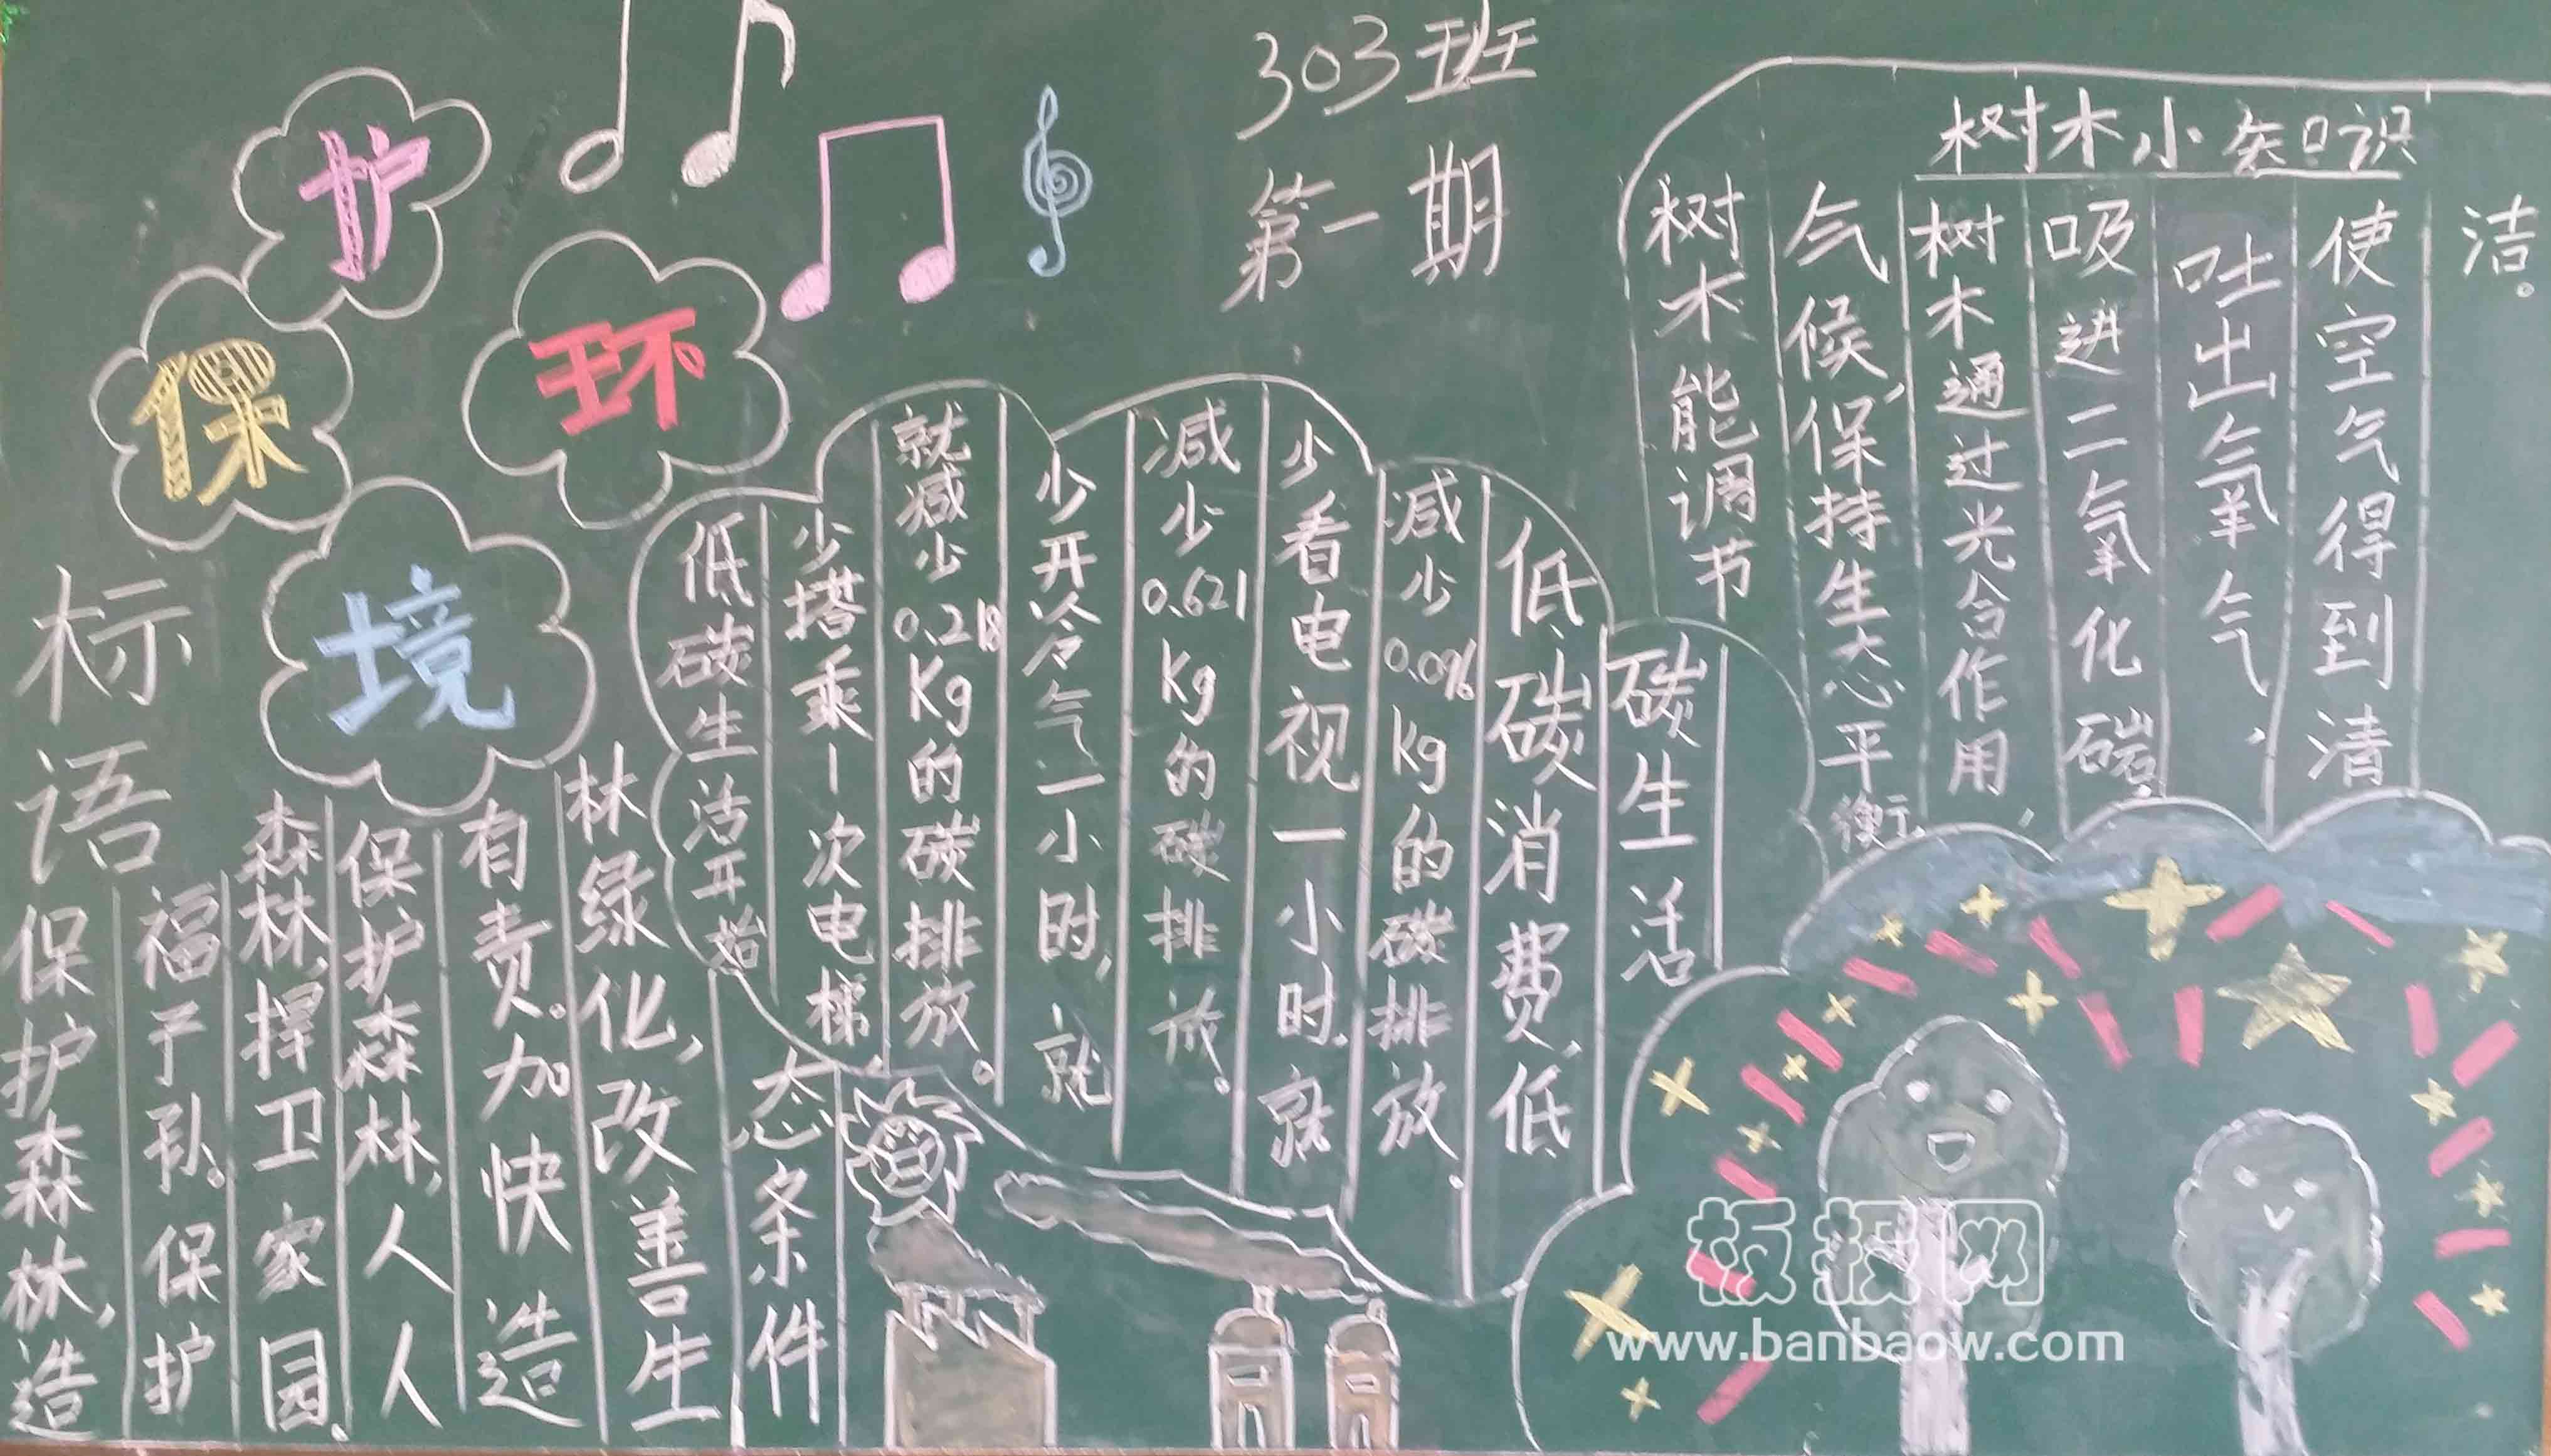 保护环境
303班
第一期
标语
保护森林,造
福子孙。保护
森林,捍卫家园.
保护森林,人人
有责。加快造
林绿化,改善生
态条件
低碳生活开始
少搭乘一次电梯
就减少0.218Kg的碳排放。
少开冷气一小时,就
减少0.621Kg的碳排放。
少看电视一小时.就
减少0.096kg的碳排放.
低碳消费,低
碳生活
树木小知识
树木能调节
气候,保持生态平衡,
树木通过光合作用,
吸进二氧化碳,
吐出氧气,
使空气得到清
洁。
板报网
www.banbaow.com